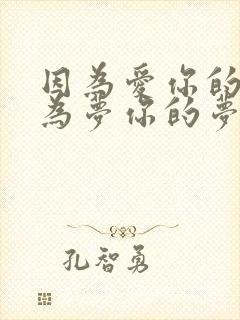 因為愛你的
為夢你的夢
孔智勇